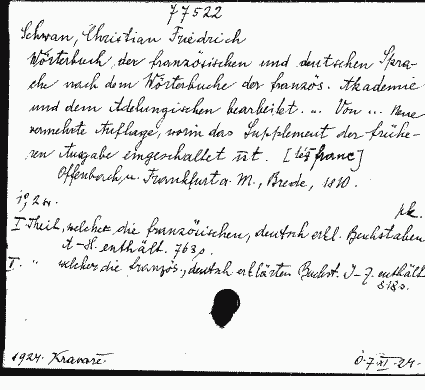 77522
Schwan, Christian Friedrich
Wörterbuch der französischen und deutschen Spra-
che nach dem Wörterbuche der französ. Akademie
und dem Adelungischen bearbeitet. .. Von ... Neue
vermehrte Auflage, worin das Supplement der frühe-
ren Ausgabe eingeschaltet ist. [ franc]
Offenbach, u. Frankfurt a. M., Brede, 1810.
pk.
I Theil, welcher die französischen, deutsch erkl. Buchstaben
A-H. enthält. 763 s.
II. " welcher die französ., deutsch erklärten Buchst. I-Z. enthält
818 s.
1924. Kravaře.
7 XI 24.